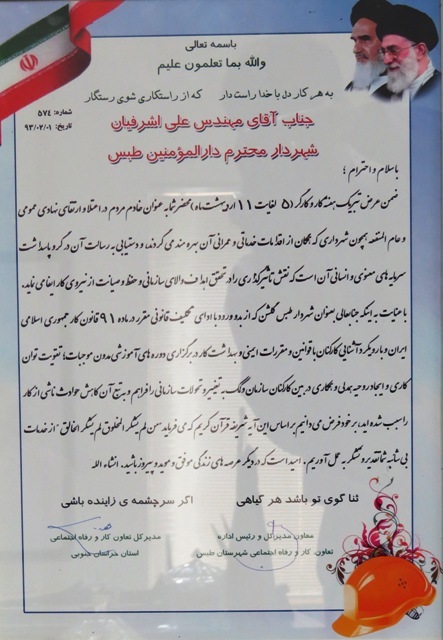 باسمه تعالی
والله بما تعملون علیم
به هر کار دل با خدا راست دار که از راستکاری شوی رستگار
شماره: ۵۷۴
تاریخ: ۹۳/۰۲/۰۱
جناب آقای مهندس علی اشرفیان
شهردار محترم دارالمؤمنین طبس
باسلام و احترام ؛
ضمن عرض تبریک هفته کار و کارگر (۵ لغایت ۱۱ اردیبهشت ماه) محضر شما به عنوان خادم مردم در اعتلا و ارتقای نهادی عمومی
و عام المنفعه همچون شهرداری که همگان از اقدامات خدماتی و عمرانی آن بهره مند می گردند، و دستیابی به رسالت آن در گرو پاسداشت
سرمایه های معنوی و انسانی آن است که نقش تاثیرگذاری را در تحقق اهداف والای سازمانی و حفظ و صیانت از نیروی کار ایفا می نماید.
با عنایت به اینکه جنابعالی بعنوان شهردار طبس گلشن که از بدو ورود با ادای تکلیف قانونی مقرر در ماده ۹۱ قانون کار جمهوری اسلامی
ایران و با رویکرد آشنایی کارکنان با قوانین و مقررات ایمنی و بهداشت کار در برگزاری دوره های آموزشی مدون موجبات؛ تقویت توان
کاری و ایجاد روحیه همدلی و همکاری در بین کارکنان سازمان و نگاه به تغییر و تحولات سازمانی را فراهم و به تبع آن کاهش حوادث ناشی از کار
را سبب شده اید، بر خود فرض می دانیم بر اساس این آیه شریفه قرآن کریم که می فرماید "من لم یشکر المخلوق لم یشکر الخالق" از خدمات
بی شائبه شما تقدیر و تشکر به عمل آوریم. امید است که در دیگر عرصه های زندگی موفق و موید و پیروز باشید. انشاء الله
ثنا گوی تو باشد هر گیاهی اگر سرچشمه ی زاینده باشی
معاون مدیرکل و رئیس اداره
تعاون، کار و رفاه اجتماعی شهرستان طبس
مدیرکل تعاون کار و رفاه اجتماعی
استان خراسان جنوبی